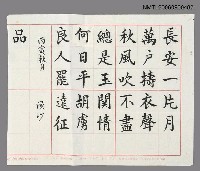 NMTL20060900406
長安一片月
萬戶擣衣聲
秋風吹不盡
總是玉關情
何日平胡虜
良人罷遠征
丙寅秋月
品